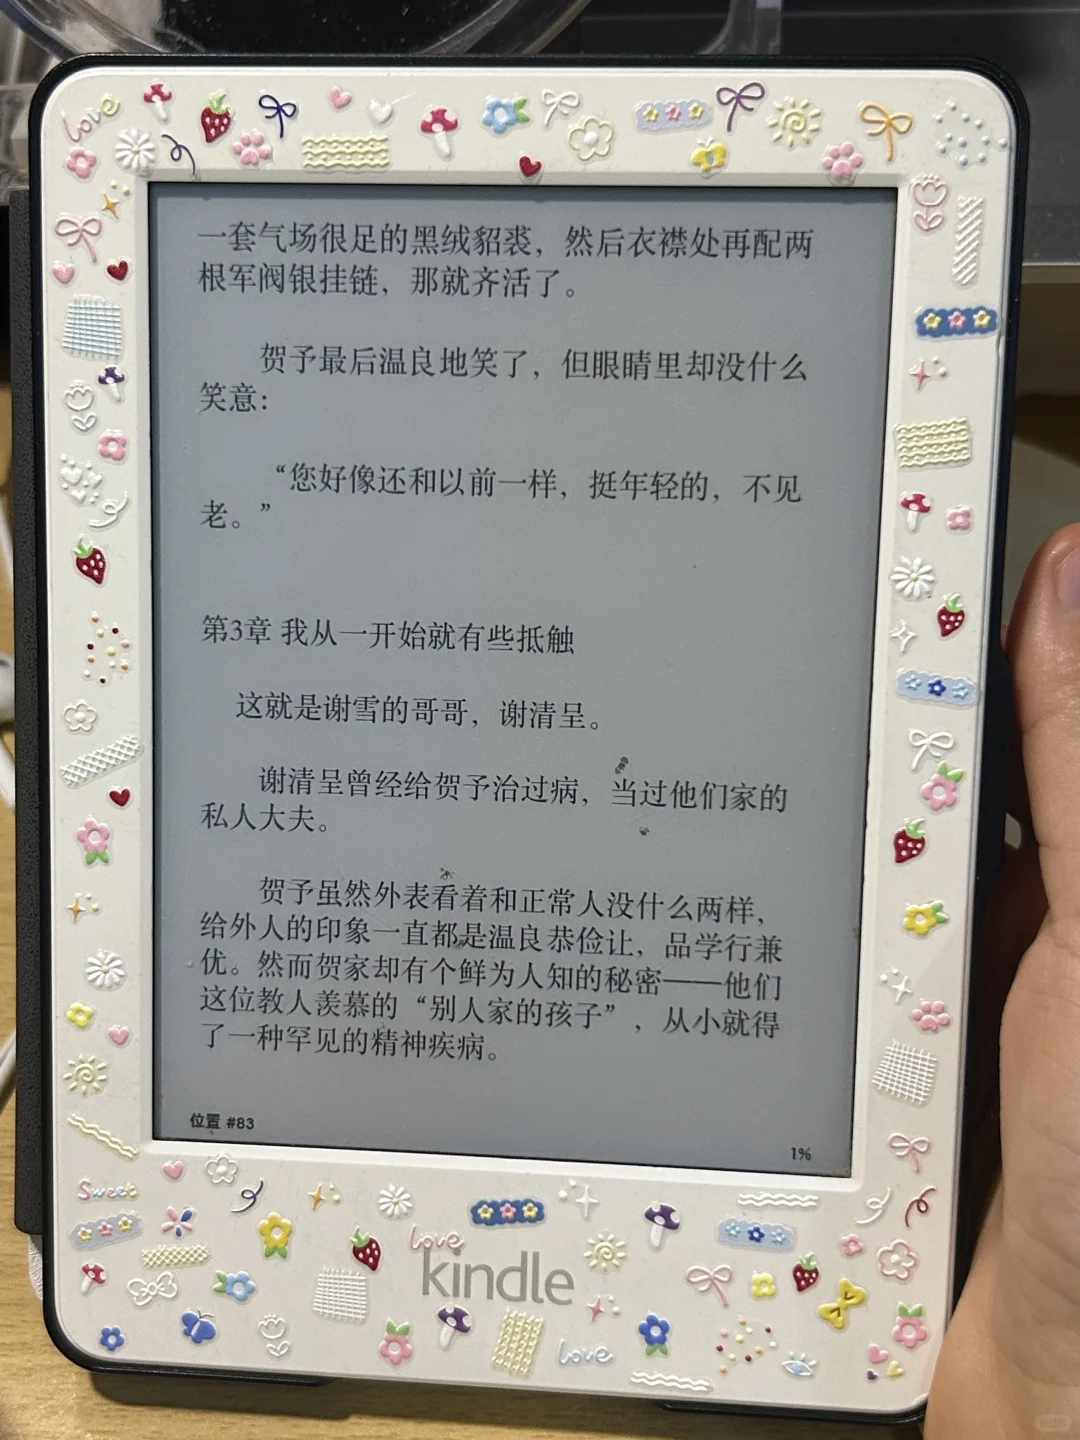 love
一套气场很足的黑绒貂裘，然后衣襟处再配两
根军阀银挂链，那就齐活了。
贺予最后温良地笑了，但眼睛里却没什么
笑意：
“您好像还和以前一样，挺年轻的，不见
老。”
第3章 我从一开始就有些抵触
这就是谢雪的哥哥，谢清呈。
谢清呈曾经给贺予治过病，当过他们家的
私人大夫。
贺予虽然外表看着和正常人没什么两样，
给外人的印象一直都是温良恭俭让，品学行兼
优。然而贺家却有个鲜为人知的秘密——他们
这位教人羡慕的“别人家的孩子”，从小就得
了一种罕见的精神疾病。
位置 #83
1%
Sweet
love
kindle
love